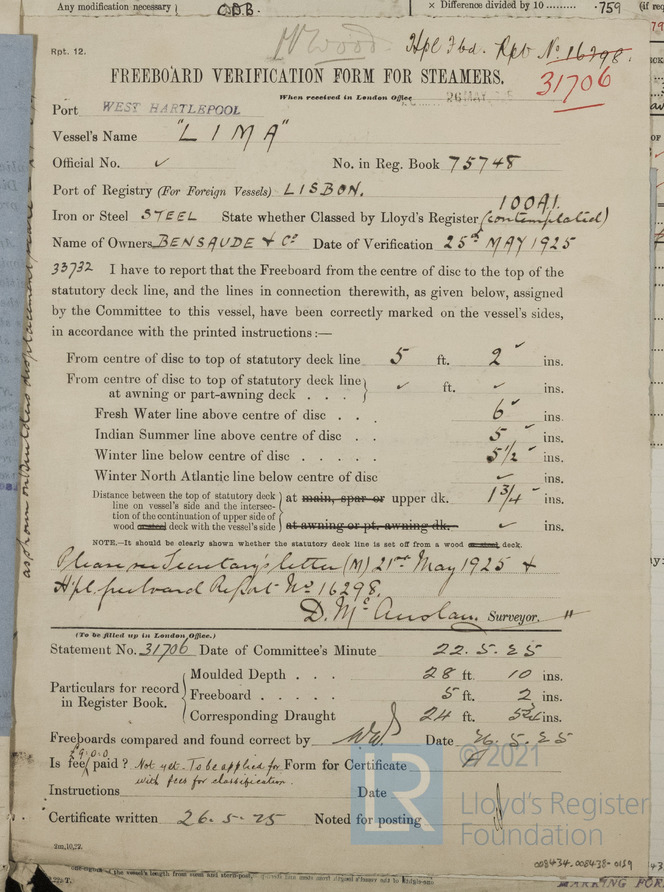 Any modification necessary
O.D.B.
× Difference divided by 10 ........ ·759
Rpt. 12.
W Wood.
Hpl Fbd. Rpt No. 16298.
FREEBOARD VERIFICATION FORM FOR STEAMERS.
31706
When received in London Office
26 MAY
Port WEST HARTLEPOOL
Vessel's Name "LIMA"
Official No. ✓ No. in Reg. Book 75748
Port of Registry (For Foreign Vessels) LISBON.
100A1.
Iron or Steel STEEL State whether Classed by Lloyd's Register (contemplated)
Name of Owners BENSAUDE & Co Date of Verification 25th MAY 1925
33732 I have to report that the Freeboard from the centre of disc to the top of the
statutory deck line, and the lines in connection therewith, as given below, assigned
by the Committee to this vessel, have been correctly marked on the vessel's sides,
in accordance with the printed instructions :—
From centre of disc to top of statutory deck line 5 ft. 2 ✓ ins.
From centre of disc to top of statutory deck line
at awning or part-awning deck . . . ✓ ft. ✓ ins.
Fresh Water line above centre of disc . . . 6 ✓ ins.
Indian Summer line above centre of disc . . 5 ✓ ins.
Winter line below centre of disc . . . . . 5 1/2 ✓ ins.
Winter North Atlantic line below centre of disc ✓ ins.
Distance between the top of statutory deck
line on vessel's side and the intersec-
tion of the continuation of upper side of
wood or steel deck with the vessel's side
at main, spar or upper dk. 1 3/4 ✓ ins.
at awning or pt. awning dk. ✓ ins.
NOTE.—It should be clearly shown whether the statutory deck line is set off from a wood or steel deck.
Please see Secretary's letter (M) 21st May 1925 &
H'pl. freeboard Report No 16298.
D. McAuslan. Surveyor.
(To be filled up in London Office.)
Statement No. 31706 Date of Committee's Minute 22.5.25
Particulars for record
in Register Book.
Moulded Depth . . . 28 ft. 10 ins.
Freeboard . . . . . 5 ft. 2 ins.
Corresponding Draught 24 ft. ins.
Freeboards compared and found correct by Date 26.5.25
£9.0.0
Is fee paid? Not yet. To be applied for Form for Certificate
with fees for classification.
Instructions Date
Certificate written 26-5-25 Noted for posting
2m,10,22.
© 2021
LR
Lloyd's Register
Foundation
008434-008438-0159